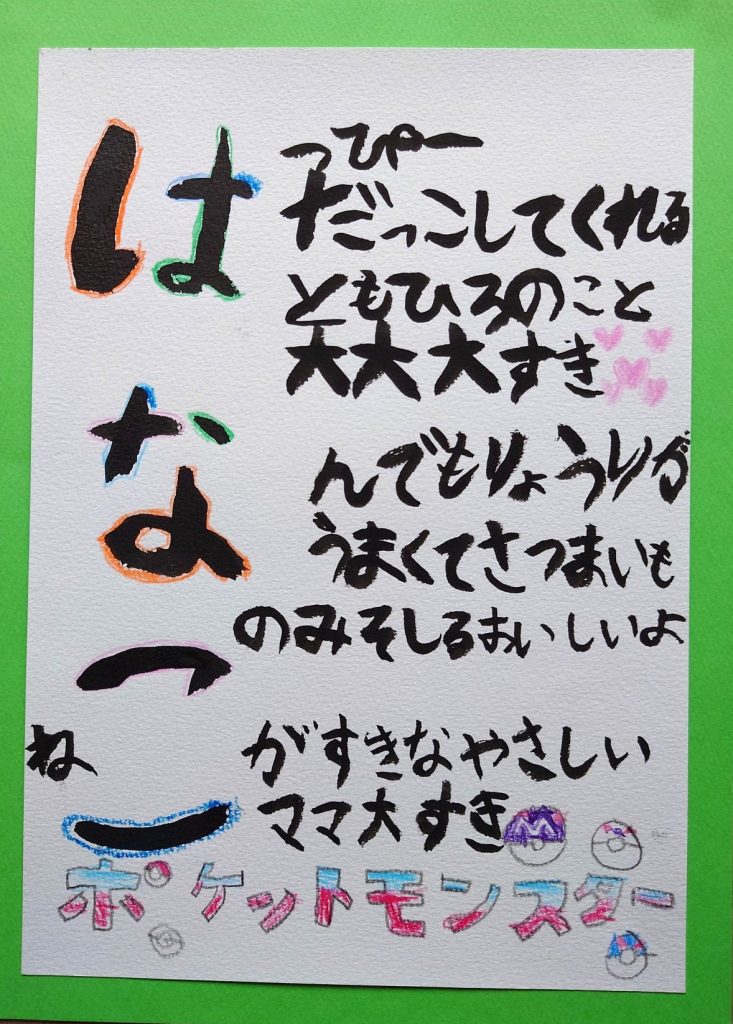 は
っぴー
だっこしてくれる
ともひろのこと
大大大すき
な
んでもりょうりが
うまくてさつまいも
のみそしるおいしいよ
ね
こ
がすきなやさしい
ママ大すき
M
ポケットモンスター